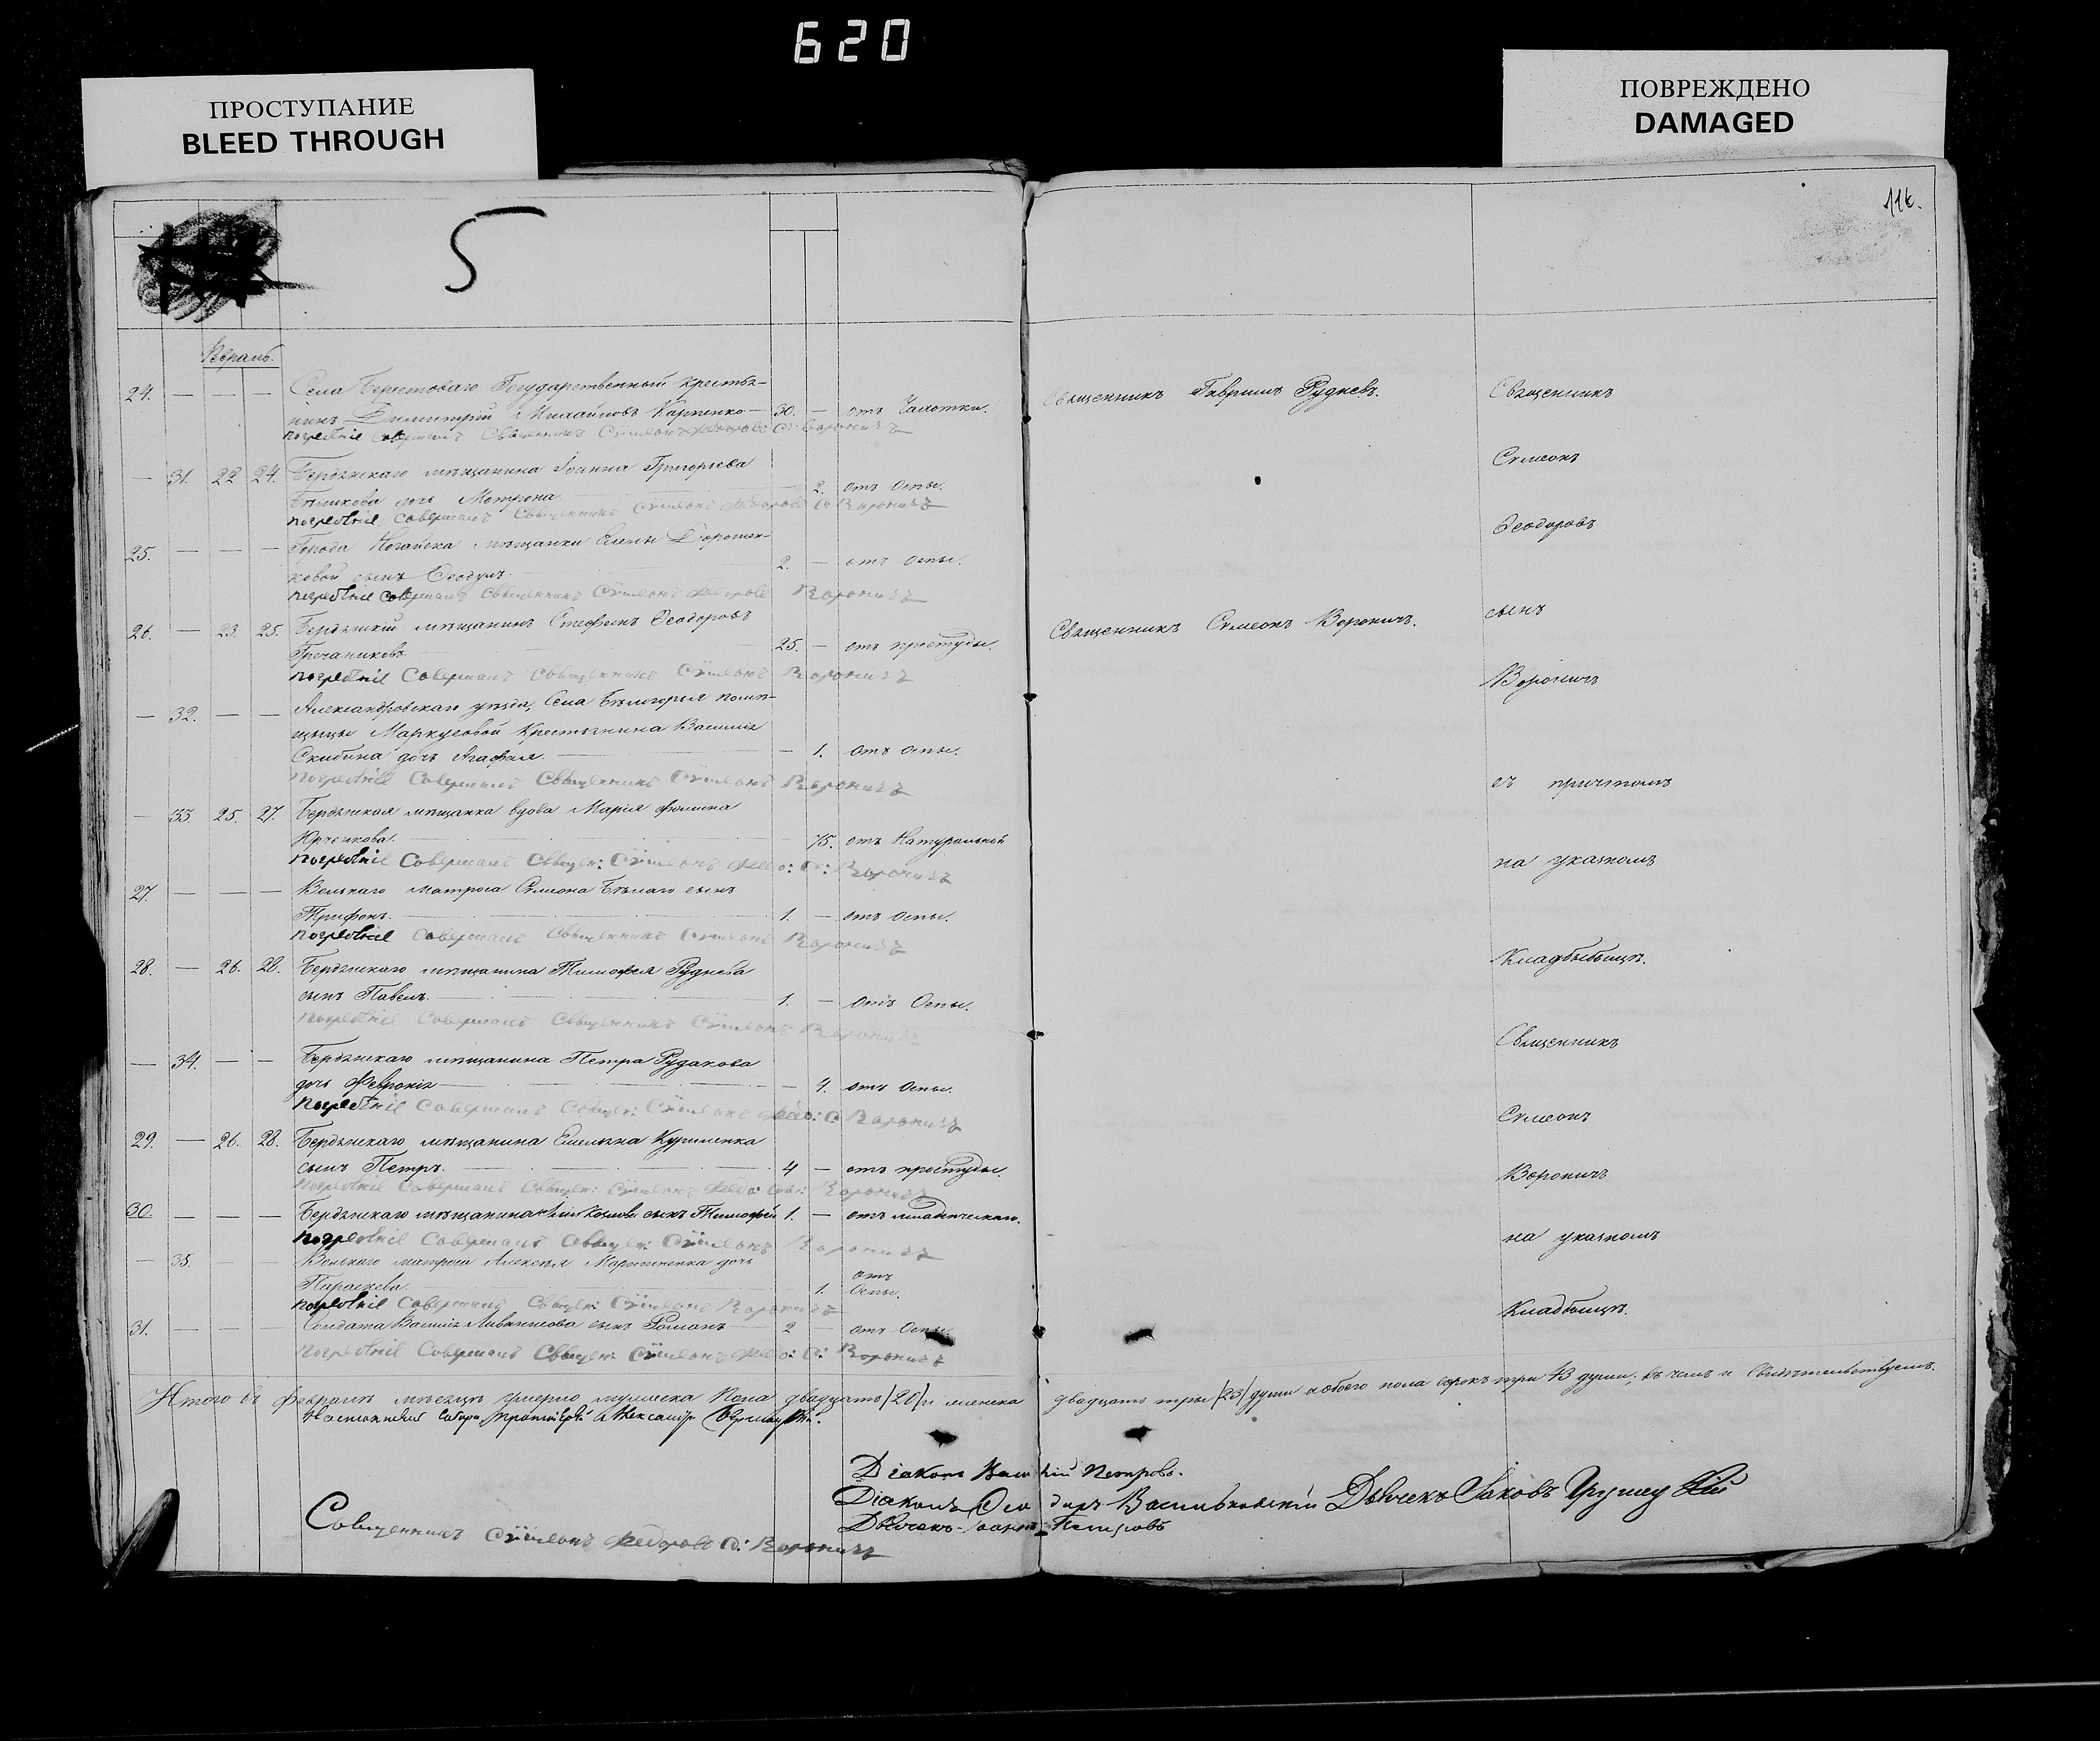 620
ПРОСТУПАНИЕ
BLEED THROUGH
ПОВРЕЖДЕНО
DAMAGED
5
116.
Февраль.
24. — — — Села Берестоваго Государственный крестья-
нинъ Димитрій Михайловъ Карпенко — 30. — отъ Чахотки.
Священникъ Гавриилъ Рудневъ.
Священникъ
погребеніе Совершалъ Священникъ Сѵмеонъ Федоровъ С: Вороничъ
— 31. 22 24. Бердянскаго мѣщанина Іоанна Григорьева
дочь Матрона — 2. отъ Оспы.
Сѵмеонъ
погребеніе Совершалъ Священникъ Сѵмеонъ Федоровъ С: Вороничъ
Ѳеодоровъ
25. — — — Города Ногайска мѣщанки Елены Дорошен-
ковой сынъ 2. — отъ оспы.
погребеніе Совершалъ Священникъ Сѵмеонъ Федоровъ Вороничъ
26. — 23. 25. Бердянскій мѣщанинъ Стефанъ Ѳеодоровъ
Гречаниковъ 25. — отъ простуды.
Священникъ Сѵмеонъ Вороничъ.
сынъ
погребеніе Совершалъ Священникъ Сѵмеонъ Вороничъ
Вороничъ
— 32. — — Александровскаго уѣзда, Села Бѣлигорья помѣ-
щицы Маркусовой Крестьянина Василія
Скибина дочь Агафія. — 1. отъ оспы.
погребеніе Совершалъ Священникъ Сѵмеонъ Вороничъ
съ причтомъ
— 33. 25. 27. Бердянская мѣщанка вдова Марія Фомина
Юрченкова. — 75. отъ Натуральной
погребеніе Совершалъ Священ: Сѵмеонъ Федо: С: Вороничъ
на указномъ
27. — — — Вольнаго матроса Сѵмеона Бѣлаго сынъ
Трифонъ. 1. — отъ оспы.
погребеніе Совершалъ Священникъ Сѵмеонъ Вороничъ
Кладбыбыщѣ.
28. — 26. 28. Бердянскаго мѣщанина Тимофея Руднева
сынъ Павелъ. 1. — отъ Оспы.
погребеніе Совершалъ Священникъ Сѵмеонъ Вороничъ
Священникъ
— 34. — — Бердянскаго мѣщанина Петра Рудакова
дочь Февронія — 4. отъ Оспы.
погребеніе Совершалъ Священ: Сѵмеонъ Федо: С: Вороничъ
Сѵмеонъ
29. — 26. 28. Бердянскаго мѣщанина Емельяна Куриленка
сынъ Петръ. 4 — отъ простуды.
Вороничъ
погребеніе Совершалъ Священ: Сѵмеонъ Федо: Вороничъ
30. — — — Бердянскаго мѣщанина Козлова сынъ Тимофей 1. — отъ младенческаго.
погребеніе Совершалъ Священ: Сѵмеонъ Вороничъ
на указномъ
— 35. — — Вольнаго матроса Алексѣя Мартыненка дочь
Параскева. — 1. отъ Оспы.
погребеніе Совершалъ Священ: Сѵмеонъ Вороничъ
Кладбыщѣ.
31. — — — Солдата Василія сынъ Романъ — 2 — отъ Оспы.
погребеніе Совершалъ Священ: Сѵмеонъ Федо: С: Вороничъ
Итого въ Февралѣ мѣсяцѣ умерло мужеска Пола двадцать /20/ и женска двадцать три /23/ души и обоего пола сорокъ три 43 души, въ чемъ и Свидѣтельствуемъ.
собора Протоіерей Александръ
Діаконъ Василій Петровъ.
Діаконъ Ѳеодоръ Васильковскій Дьячекъ Іаковъ
Дьячекъ Іоаннъ Петровъ
Священникъ Сѵмеонъ Федоровъ С: Вороничъ